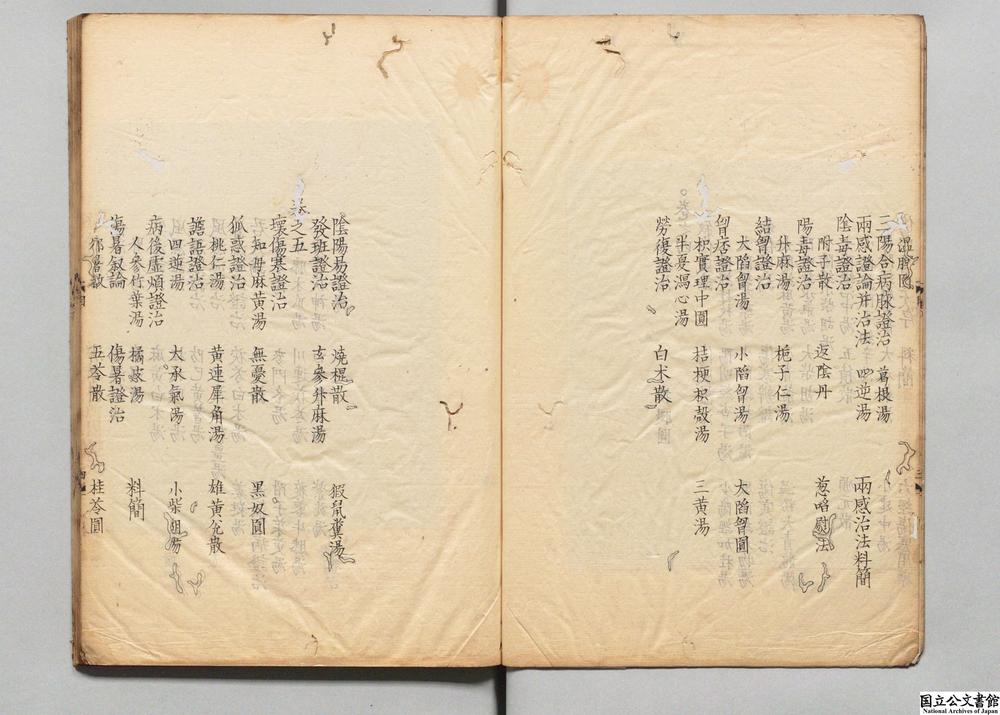 溫脾圓
三陽合病脉證治　葛根湯
兩感證論并治法　四逆湯　兩感治法料簡
陰毒證治
附子散　返陰丹　葱啗熨法
陽毒證治
升麻湯　梔子仁湯
結胷證治
大陷胷湯　小陷胷湯　大陷胷圓
胷痞證治
枳實理中圓　桔梗枳殻湯
半夏瀉心湯　三黄湯
勞復證治　白术散
陰陽易證治　燒裩散　猳鼠糞湯
發班證治　玄參升麻湯
卷之五
壞傷寒證治　無憂散
知母麻黄湯　黑奴圓
狐惑證治
桃仁湯　黄連犀角湯　雄黄兊散
譫語證治
四逆湯　大承氣湯　小柴胡湯
病後虚煩證治
人參竹葉湯　橘皮湯　料簡
傷暑叙論　傷暑證治
五苓散　桂苓圓
国立公文書館
National Archives of Japan